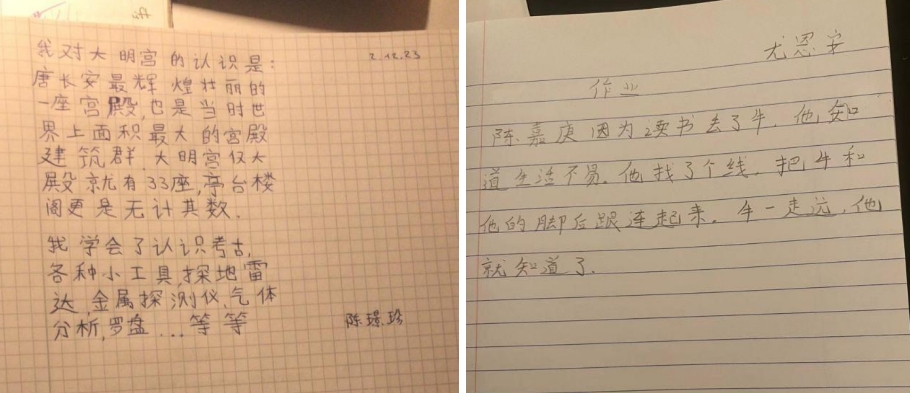 我对大明宫的认识是:
2.12.23
唐长安最辉煌壮丽的
一座宫殿,也是当时世
界上面积最大的宫殿
建筑群.大明宫仅大
殿就有33座,亭台楼
阁更是无计其数.
我学会了认识考古,
各种小工具,探地雷
达,金属探测仪,气体
分析,罗盘...等等
陈璟珍
尤恩安
作业
陈嘉庚因为读书丢了牛.他知
道生活不易.他找了个线.把牛和
他的脚后跟连起来.牛一走远,他
就知道了.